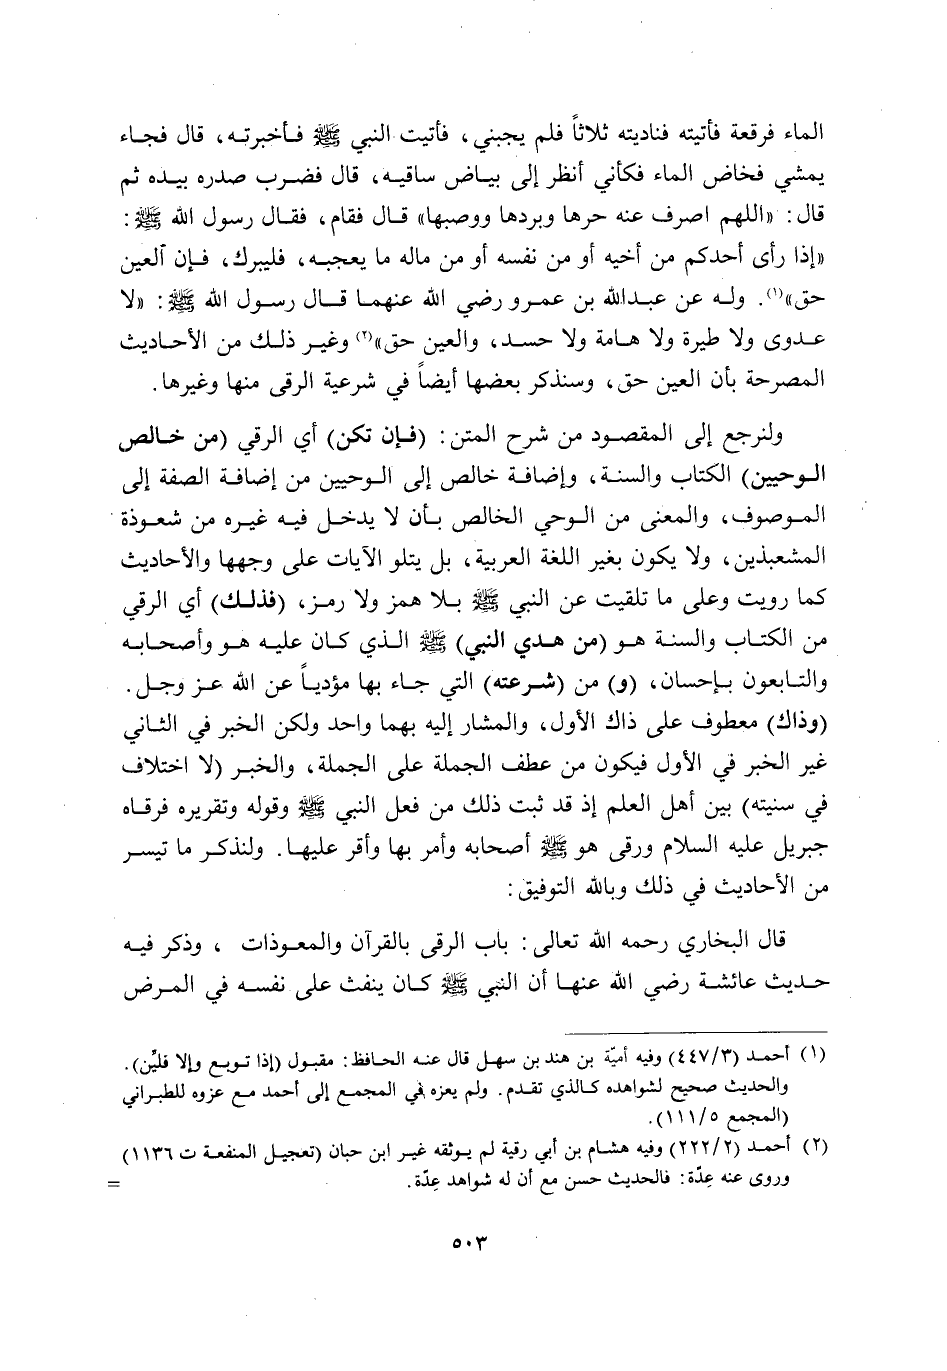 الماء فرقعة فأتيته فناديته ثلاثاً فلم يجبني، فأتيت النبي ﷺ فأخبرته، قال فجاء
يمشي فخاض الماء فكأني أنظر إلى بياض ساقيه، قال فضرب صدره بيده ثم
قال: «اللهم اصرف عنه حرها وبردها ووصبها» قال فقام، فقال رسول الله ﷺ:
«إذا رأى أحدكم من أخيه أو من نفسه أو من ماله ما يعجبه، فليبرك، فإن ألعين
حق»(١). وله عن عبدالله بن عمرو رضي الله عنهما قال رسول الله ﷺ: «لا
عدوى ولا طيرة ولا هامة ولا حسد، والعين حق»(٢) وغير ذلك من الأحاديث
المصرحة بأن العين حق، وسنذكر بعضها أيضاً في شرعية الرقى منها وغيرها.
ولنرجع إلى المقصود من شرح المتن: (فإن تكن) أي الرقي (من خالص
الوحيين) الكتاب والسنة، وإضافة خالص إلى الوحيين من إضافة الصفة إلى
الموصوف، والمعنى من الوحي الخالص بأن لا يدخل فيه غيره من شعوذة
المشعبذين، ولا يكون بغير اللغة العربية، بل يتلو الآيات على وجهها والأحاديث
كما رويت وعلى ما تلقيت عن النبي ﷺ بلا همز ولا رمز، (فذلك) أي الرقي
من الكتاب والسنة هو (من هدي النبي) ﷺ الذي كان عليه هو وأصحابه
والتابعون بإحسان، (و) من (شرعته) التي جاء بها مؤدياً عن الله عز وجل.
(وذاك) معطوف على ذاك الأول، والمشار إليه بهما واحد ولكن الخبر في الثاني
غير الخبر في الأول فيكون من عطف الجملة على الجملة، والخبر (لا اختلاف
في سنيته) بين أهل العلم إذ قد ثبت ذلك من فعل النبي ﷺ وقوله وتقريره فرقاه
جبريل عليه السلام ورقى هو ﷺ أصحابه وأمر بها وأقر عليها. ولنذكر ما تيسر
من الأحاديث في ذلك وبالله التوفيق:
قال البخاري رحمه الله تعالى: باب الرقى بالقرآن والمعوذات ، وذكر فيه
حديث عائشة رضي الله عنها أن النبي ﷺ كان ينفث على نفسه في المرض
(١) أحمد (٤٤٧/٣) وفيه أميّة بن هند بن سهل قال عنه الحافظ: مقبول (إذا توبع وإلا فليّن).
والحديث صحيح لشواهده كالذي تقدم. ولم يعزه في المجمع إلى أحمد مع عزوه للطبراني
(المجمع ١١١/٥).
(٢) أحمد (٢٢٢/٢) وفيه هشام بن أبي رقية لم يوثقه غير ابن حبان (تعجيل المنفعة ت ١١٣٦)
وروى عنه عِدّة: فالحديث حسن مع أن له شواهد عِدّة. =
٥٠٣